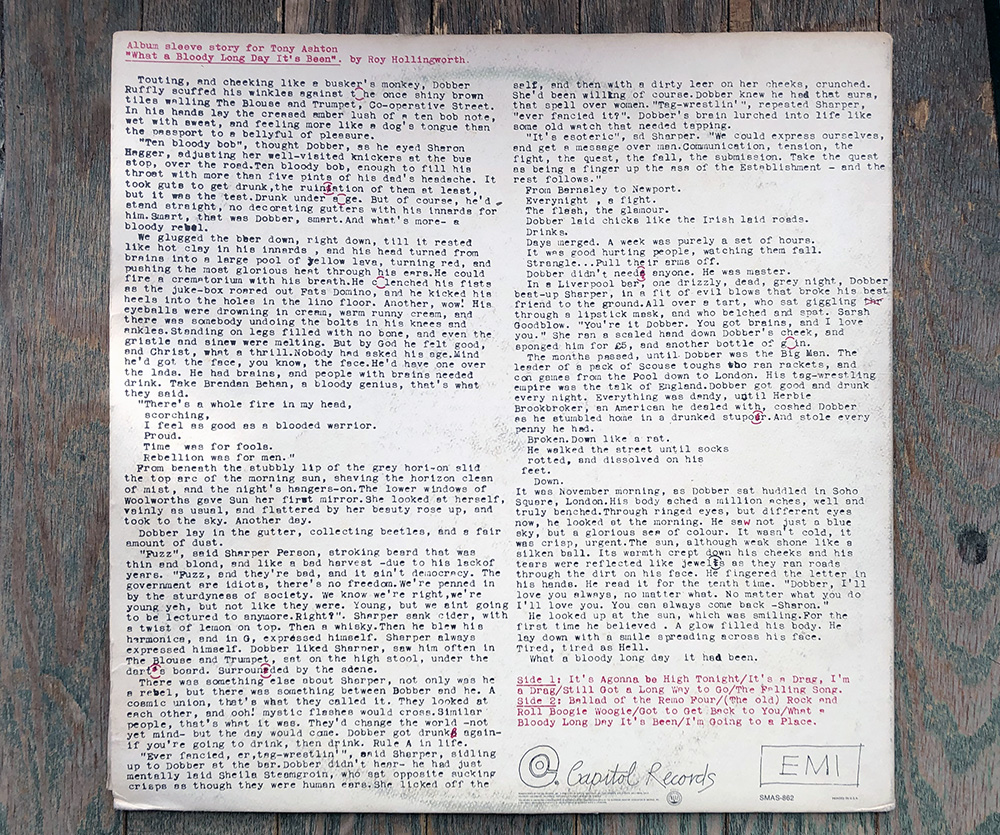 Album sleeve story for Tony Ashton
"What a Bloody Long Day It's Been". by Roy Hollingworth.
Touting, and cheeking like a busker's monkey, Dobber
Ruffly scuffed his winkles against t he once shiny brown
tiles walling The Blouse and Trumpet, Co-operative Street.
In his hands lay the creased amber lush of a ten bob note,
wet with sweat, and feeling more like a dog's tongue than
the passport to a bellyful of pleasure.
"Ten bloody bob", thought Dobber, as he eyed Sharon
Hagger, adjusting her well-visited knickers at the bus
stop, over the road.Ten bloody bob, enough to fill his
throat with more than five pints of his dad's headache. It
took guts to get drunk,the ruination of them at least,
but it was the test.Drunk under a ge. But of course, he'd
stand straight, no decorating gutters with his innards for
him.Smart, that was Dobber, smart.And what's more- a
bloody rebel.
We glugged the beer down, right down, till it rested
like hot clay in his innards , and his head turned from
brains into a large pool of yellow lava, turning red, and
pushing the most glorious heat through his ears.He could
fire a crematorium with his breath.He c lenched his fists
as the juke-box roared out Fats Domino, and he kicked his
heels into the holes in the lino floor. Another, wow! His
eyeballs were drowning in cream, warm runny cream, and
there was somebody undoing the bolts in his knees and
ankles.Standing on legs filled with no bone, and even the
gristle and sinew were melting. But by God he felt good,
and Christ, what a thrill.Nobody had asked his age.Mind
he'd got the face, you know, the face.He'd have one over
the lads. He had brains, and people with brains needed
drink. Take Brendan Behan, a bloody genius, that's what
they said.
"There's a whole fire in my head,
scorching,
I feel as good as a blooded warrior.
Proud.
Time was for fools.
Rebellion was for men."
From beneath the stubbly lip of the grey hori-on slid
the top arc of the morning sun, shaving the horizon clean
of mist, and the night's hangers-on.The lower windows of
Woolworths gave Sun her first mirror.She looked at herself,
vainly as usual, and flattered by her beauty rose up, and
took to the sky. Another day.
Dobber lay in the gutter, collecting beetles, and a fair
amount of dust.
"Fuzz", said Sharper Person, stroking beard that was
thin and blond, and like a bad harvest -due to his lackof
years. "Fuzz, and they're bad, and it ain't democracy. The
government are idiots, there's no freedom.We're penned in
by the sturdyness of society. We know we're right,we're
young yeh, but not like they were. Young, but we aint going
to be lectured to anymore.Right?". Sharper sank cider, with
a twist of lemon on top. Then a whisky.Then he blew his
harmonica, and in G, expressed himself. Sharper always
expressed himself. Dobber liked Sharper, saw him often in
The Blouse and Trumpet, sat on the high stool, under the
dart s board. Surrounded by the sdene.
There was something else about Sharper, not only was he
a rebel, but there was something between Dobber and he. A
cosmic union, that's what they called it. They looked at
each other, and ooh! mystic flashes would cross.Similar
people, that's what it was. They'd change the world -not
yet mind- but the day would come. Dobber got drunk again-
if you're going to drink, then drink. Rule A in life.
"Ever fancied, er,tag-wrestlin'", said Sharper, sidling
up to Dobber at the bar.Dobber didn't hear- he had just
mentally laid Sheila Steamgroin, who sat opposite sucking
crisps as though they were human ears.She licked off the
self, and then with a dirty leer on her cheeks, crunched.
She'd been willing of course.Dobber knew he had that aura,
that spell over women."Tag-wrestlin'", repeated Sharper,
"ever fancied it?". Dobber's brain lurched into life like
some old watch that needed tapping.
"It's esoteric", sd Sharper. "We could express ourselves,
and get a message over man.Communication, tension, the
fight, the quest, the fall, the submission. Take the quest
as being a finger up the ass of the Establishment - and the
rest follows."
From Barnsley to Newport.
Everynight , a fight.
The flash, the glamour.
Dobber laid chicks like the Irish laid roads.
Drinks.
Days merged. A week was purely a set of hours.
It was good hurting people, watching them fall.
Strange...Pull their arms off.
Dobber didn't need anyone. He was master.
In a Liverpool bar, one drizzly, dead, grey night, Dobber
beat-up Sharper, in a fit of evil blows that broke his best
friend to the ground.All over a tart, who sat giggling
through a lipstick mask, and who belched and spat. Sarah
Goodblow. "You're it Dobber. You got brains, and I love
you." She ran a scaled hand down Dobber's cheek, and
sponged him for £5, and another bottle of g in.
The months passed, until Dobber was the Big Man. The
leader of a pack of Scouse toughs who ran rackets, and
con games from the Pool down to London. His tag-wrestling
empire was the talk of England.Dobber got good and drunk
every night. Everything was dandy, until Herbie
Brookbroker, an American he dealed with, coshed Dobber
as he stumbled home in a drunked stupor.And stole every
penny he had.
Broken.Down like a rat.
He walked the street until socks
rotted, and dissolved on his
feet.
Down.
It was November morning, as Dobber sat huddled in Soho
Square, London.His body ached a million aches, well and
truly benched.Through ringed eyes, but different eyes
now, he looked at the morning. He saw not just a blue
sky, but a glorious sea of colour. It wasn't cold, it
was crisp, urgent.The sun, although weak shone like a
silken ball. Its warmth crept down his cheeks and his
tears were reflected like jewels as they ran roads
through the dirt on his face. He fingered the letter in
his hands. He read it for the tenth time. "Dobber, I'll
love you always, no matter what. No matter what you do
I'll love you. You can always come back -Sharon."
He looked up at the sun, which was smiling.For the
first time he believed . A glow filled his body. He
lay down with a smile spreading across his face.
Tired, tired as Hell.
What a bloody long day it had been.
Side 1: It's Agonna be High Tonight/It's a Drag, I'm
a Drag/Still Got a Long Way to Go/The Falling Song.
Side 2: Ballad of the Remo Four/(The old) Rock and
Roll Boogie Woogie/Got to Get Back to You/What a
Bloody Long Day It's Been/I'm Going to a Place.
Capitol Records
EMI
SMAS-862